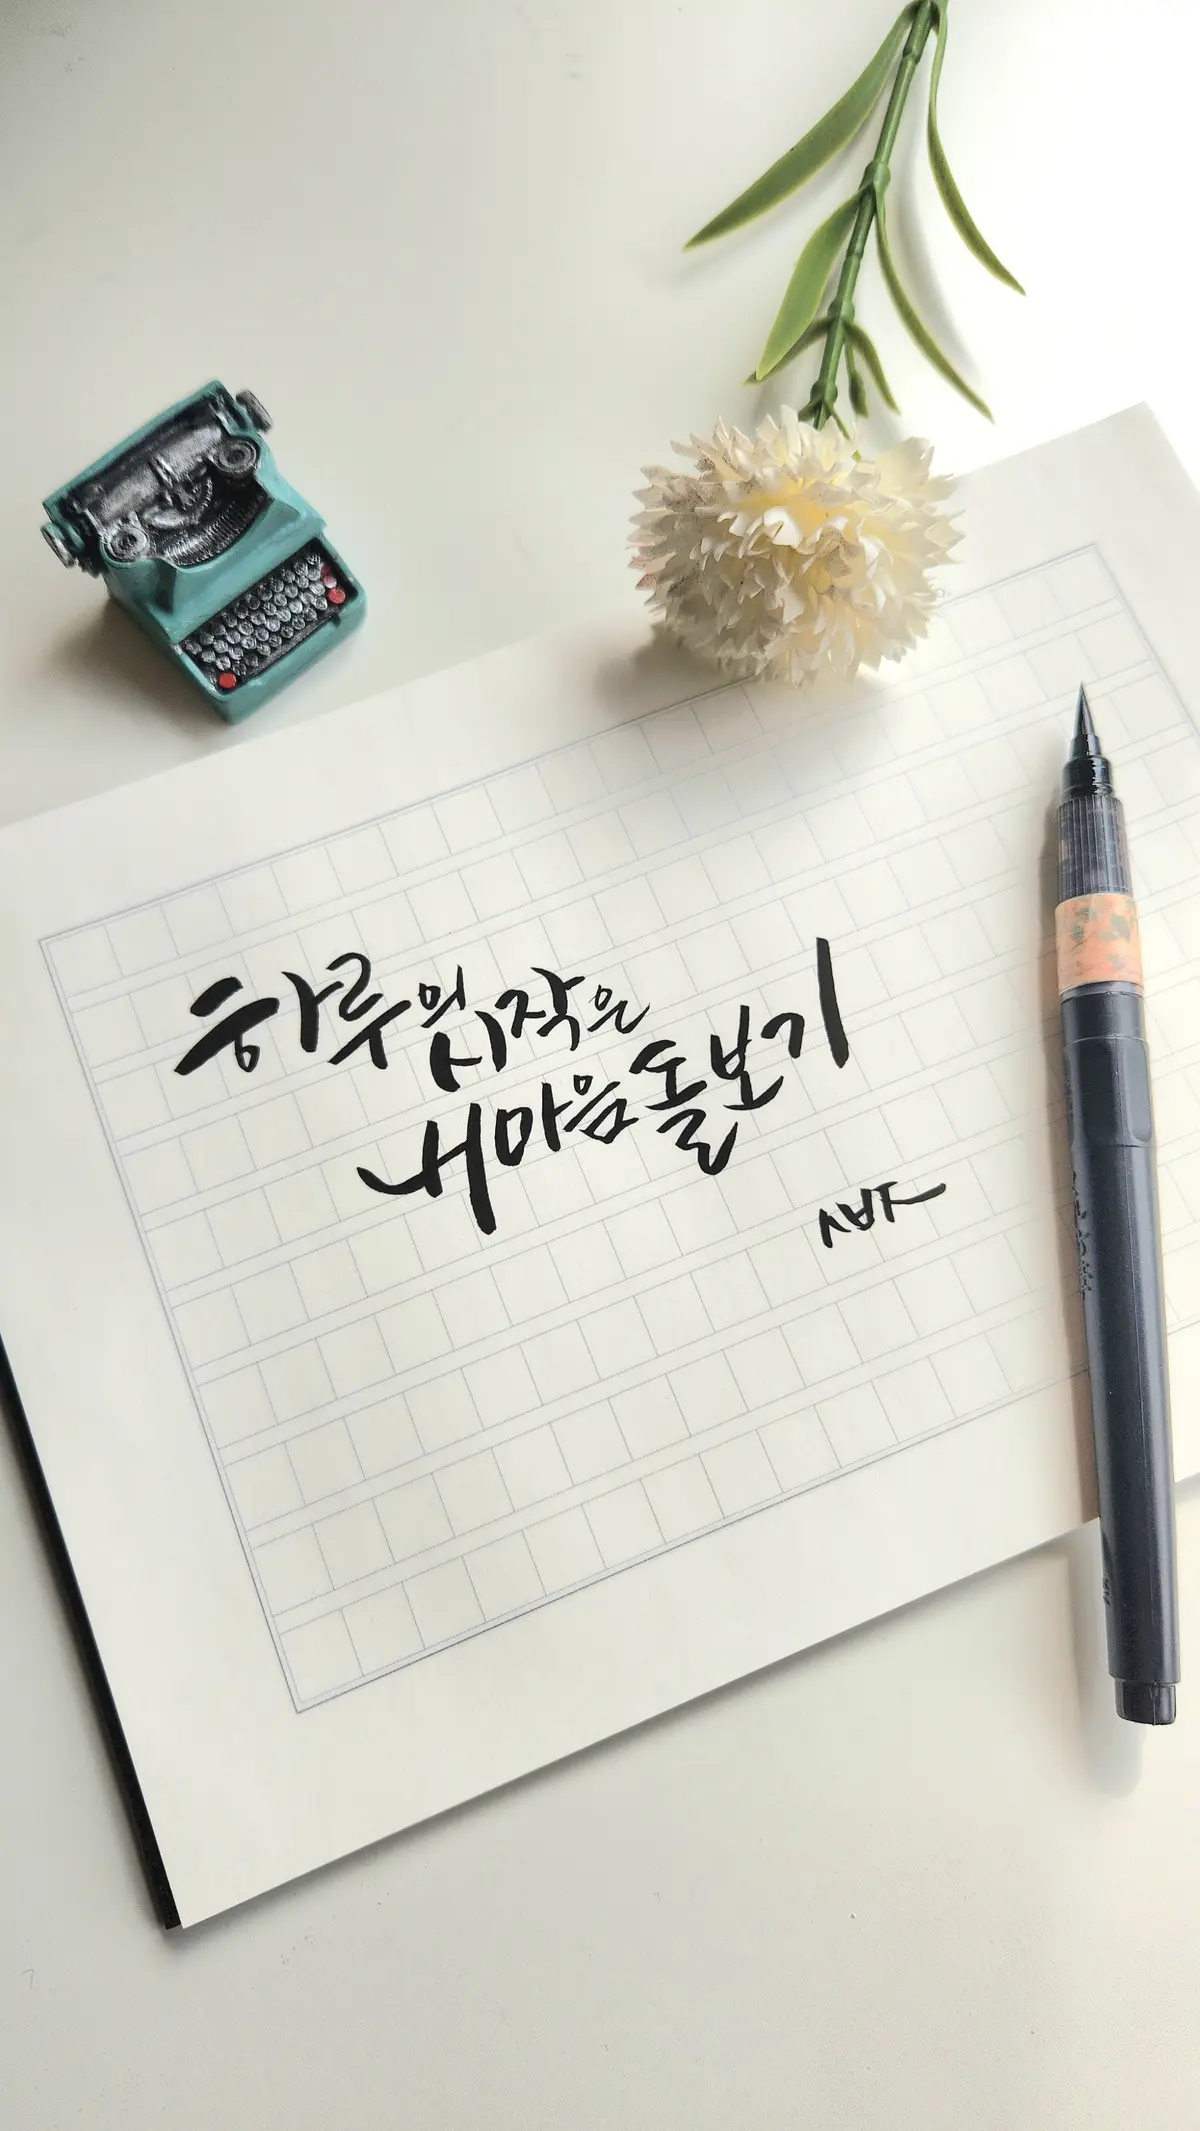 하루의 시작은
내 마음 돌보기